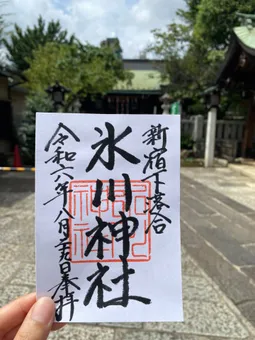 新宿下落合
氷川神社
令和六年八月二十五日奉拝